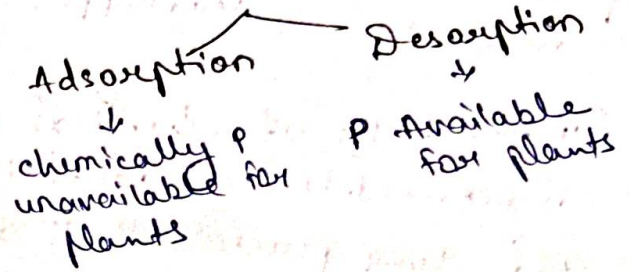 Adsorption
↓
chemically P
unavailable for
plants
Desorption
↓
P Available
for plants